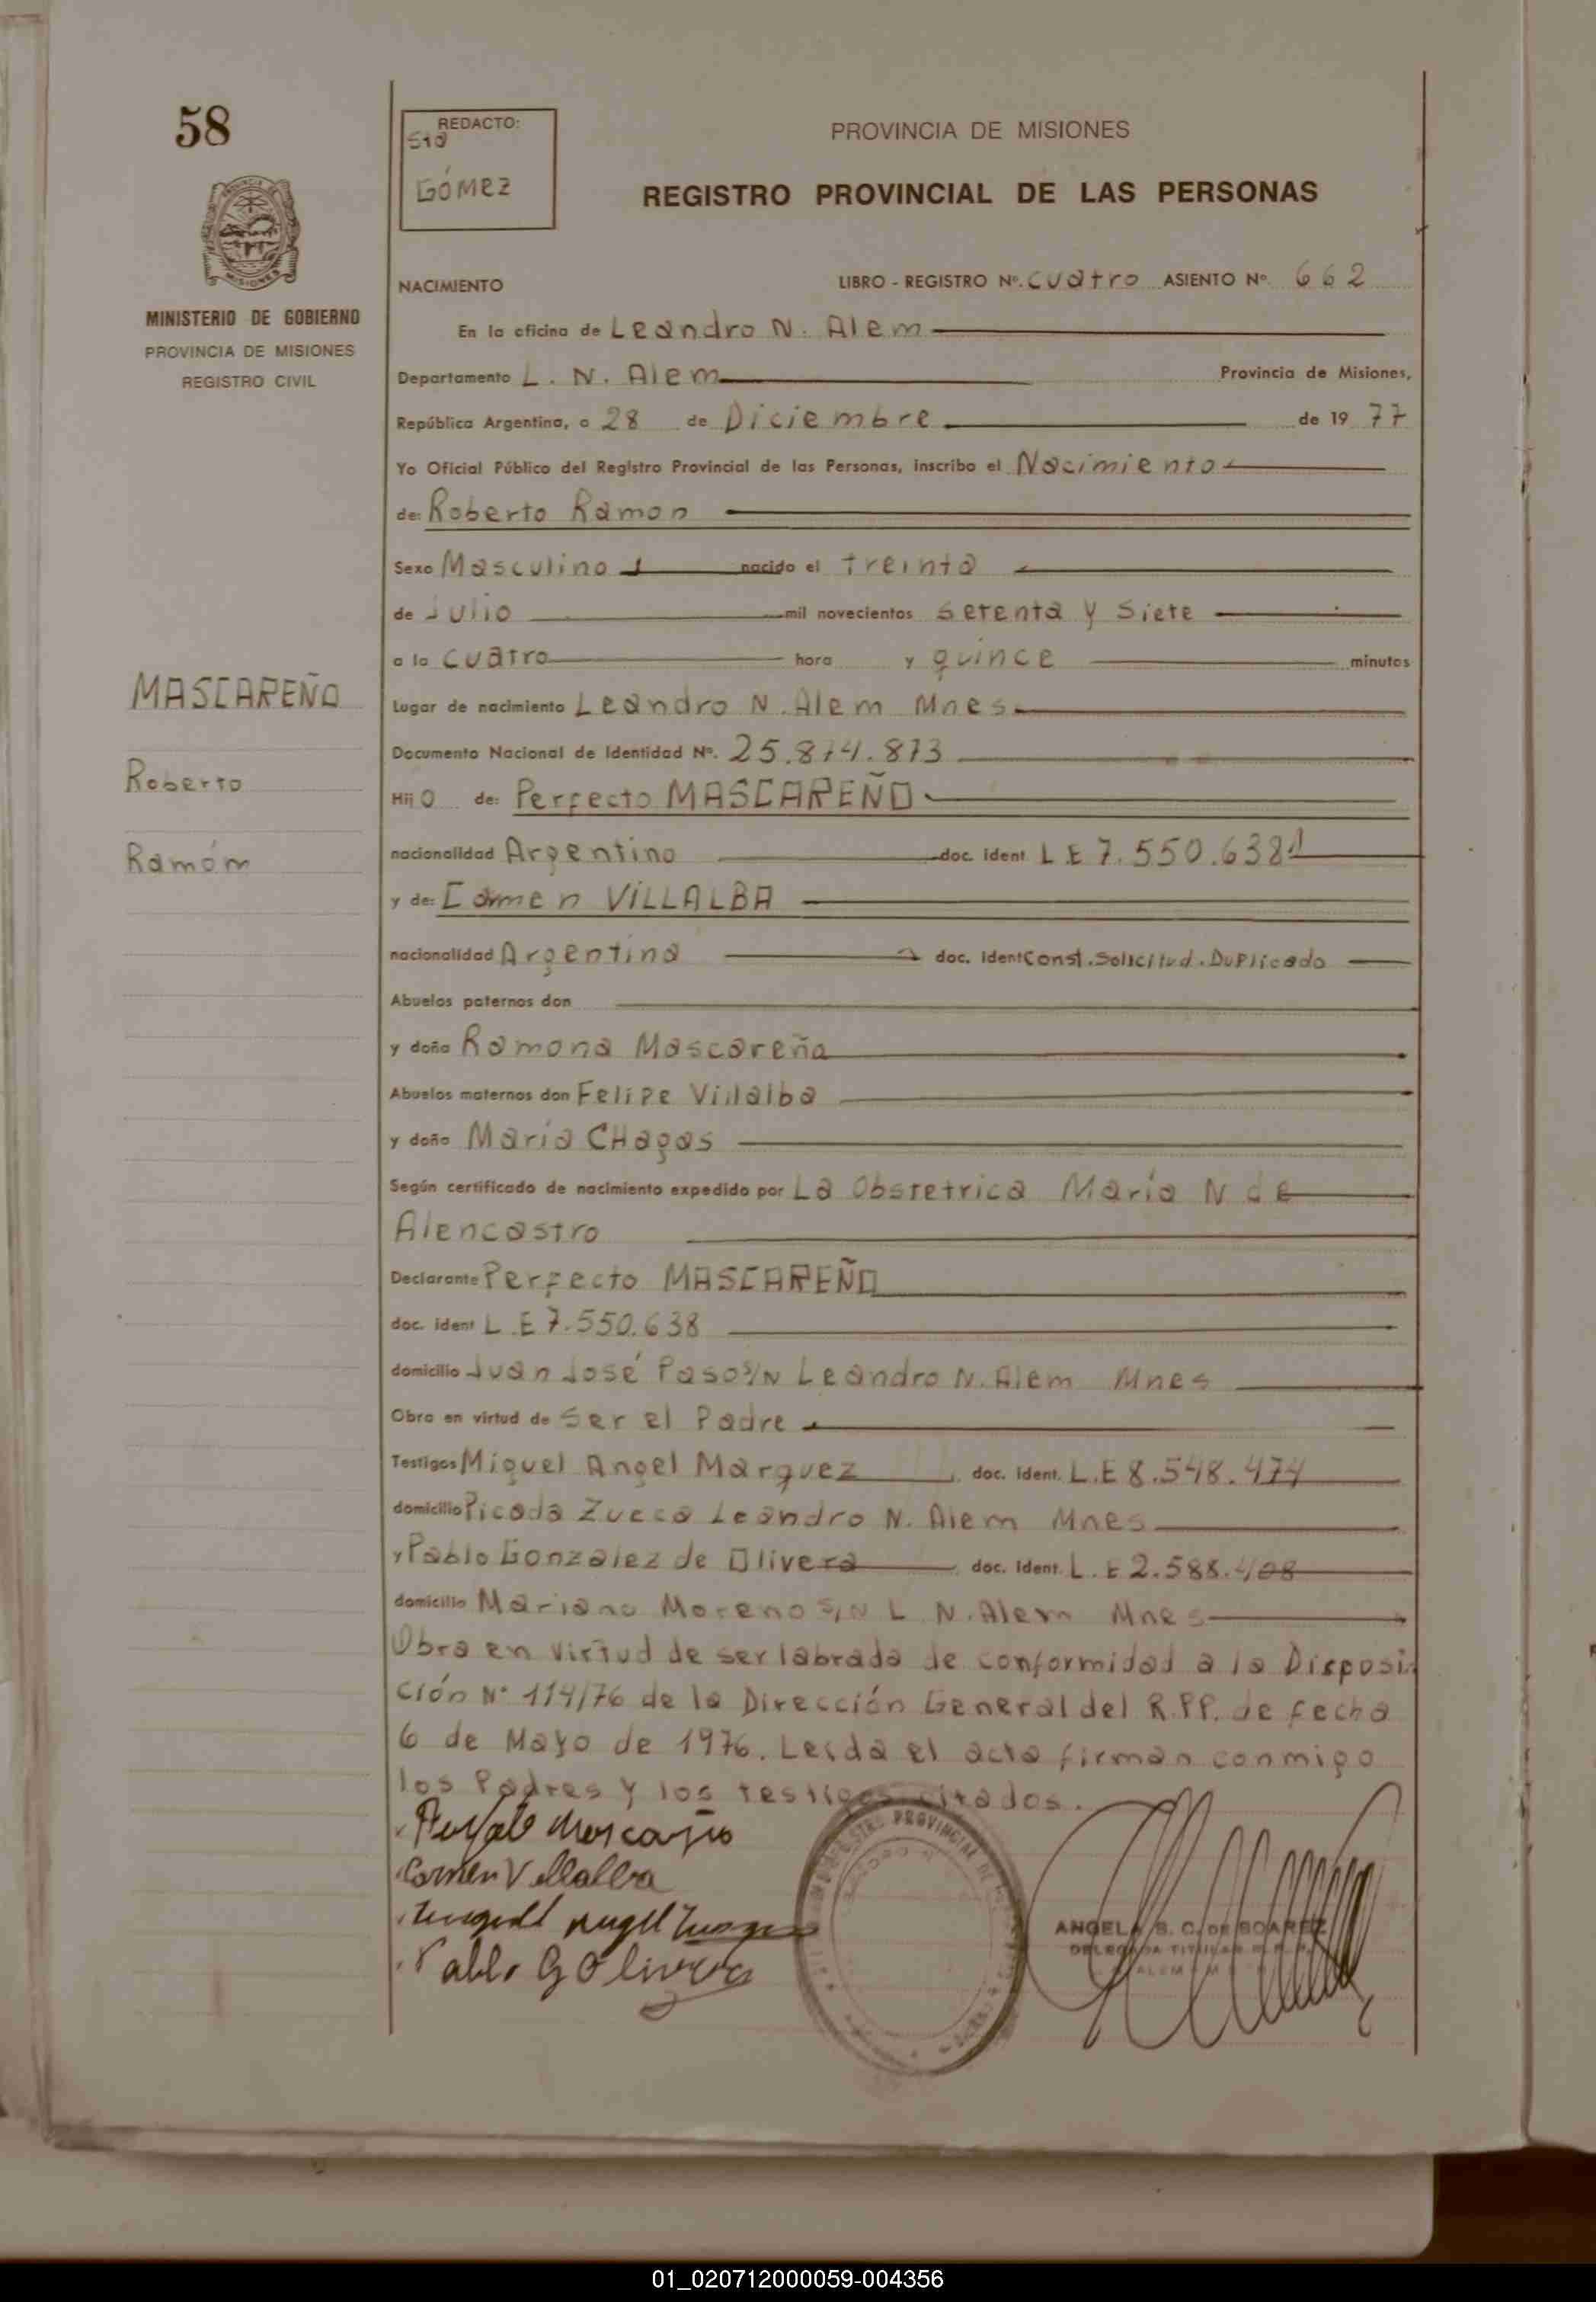 58
REDACTO:
GÓMEZ
PROVINCIA DE MISIONES
REGISTRO PROVINCIAL DE LAS PERSONAS
MINISTERIO DE GOBIERNO
PROVINCIA DE MISIONES
REGISTRO CIVIL
NACIMIENTO LIBRO - REGISTRO Nº. Cuatro ASIENTO Nº. 662
En la oficina de Leandro N. Alem
Departamento L. N. Alem Provincia de Misiones,
República Argentina, a 28 de Diciembre de 19 77
Yo Oficial Público del Registro Provincial de las Personas, inscribo el Nacimiento
de: Roberto Ramon
Sexo Masculino nacido el treinta
de Julio mil novecientos setenta y Siete
a la cuatro hora y quince minutos
MASCAREÑO
Lugar de nacimiento Leandro N. Alem Mnes
Documento Nacional de Identidad Nº. 25.874.873
Roberto
Hijo de: Perfecto MASCAREÑO
Ramóm
nacionalidad Argentino doc. ident. L E 7.550.638
y de: Carmen VILLALBA
nacionalidad Argentina doc. Ident Const. Solicitud. Duplicado
Abuelos paternos don
y doña Ramona Mascareña
Abuelos maternos don Felipe Villalba
y doña Maria CHagas
Según certificado de nacimiento expedido por La Obstetrica María N de
Alencastro
Declarante Perfecto MASCAREÑO
doc. ident L.E 7.550.638
domicilio Juan José Paso S/N Leandro N. Alem Mnes
Obra en virtud de Ser el Padre
Testigos Miguel Angel Marquez doc. ident. L.E 8.548.474
domicilio Picada Zueca Leandro N. Alem Mnes
y Pablo Gonzalez de Olivera doc. ident. L. E 2.588.408
domicilio Mariano Moreno S/N L N. Alem Mnes
Obra en Virtud de ser labrada de conformidad a la Disposi
ción Nº 114/76 de la Dirección General del R.P.P. de fecha
6 de Mayo de 1976. Leida el acta firman conmigo
los Padres y los testigos citados.
Carmen Villalba
Pablo G Olivera
ANGELA S. C. DE SOAREZ
DELEGADA TITULAR R. P. P.
01_020712000059-004356